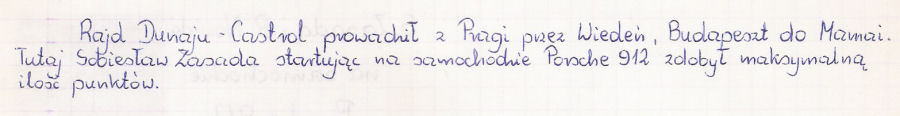 Rajd Dunaju - Castrol prowadził z Pragi przez Wiedeń, Budapeszt do Mamai.
Tutaj Sobiesław Zasada startując na samochodzie Porsche 912 zdobył maksymalną
ilość punktów.